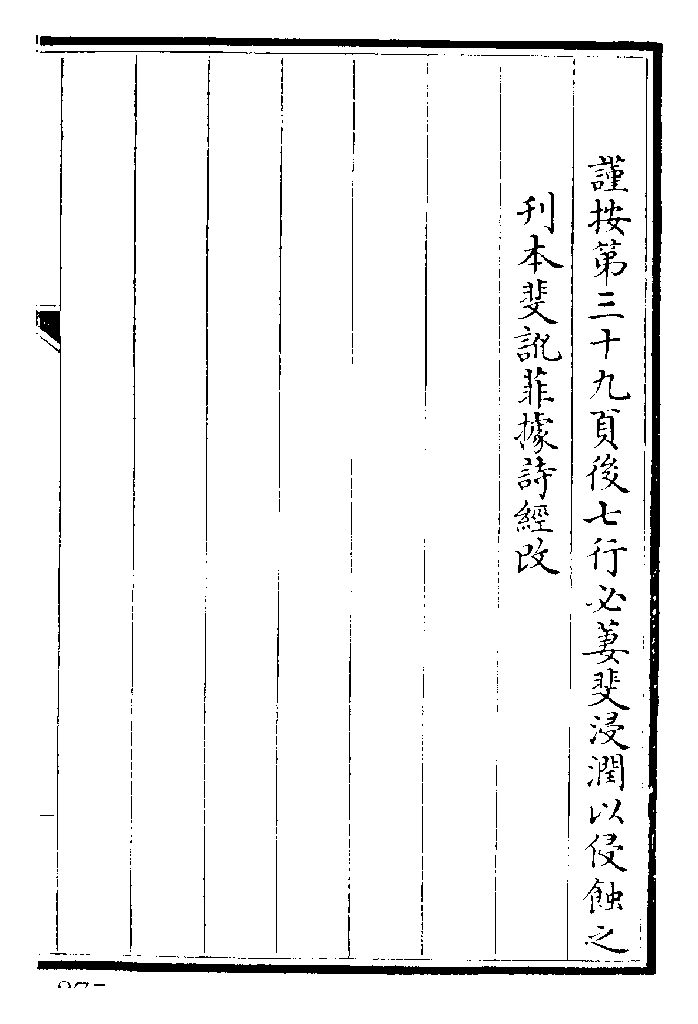 謹按第三十九頁後七行必萋斐浸潤以侵蝕之
刊本斐訛菲據詩經改